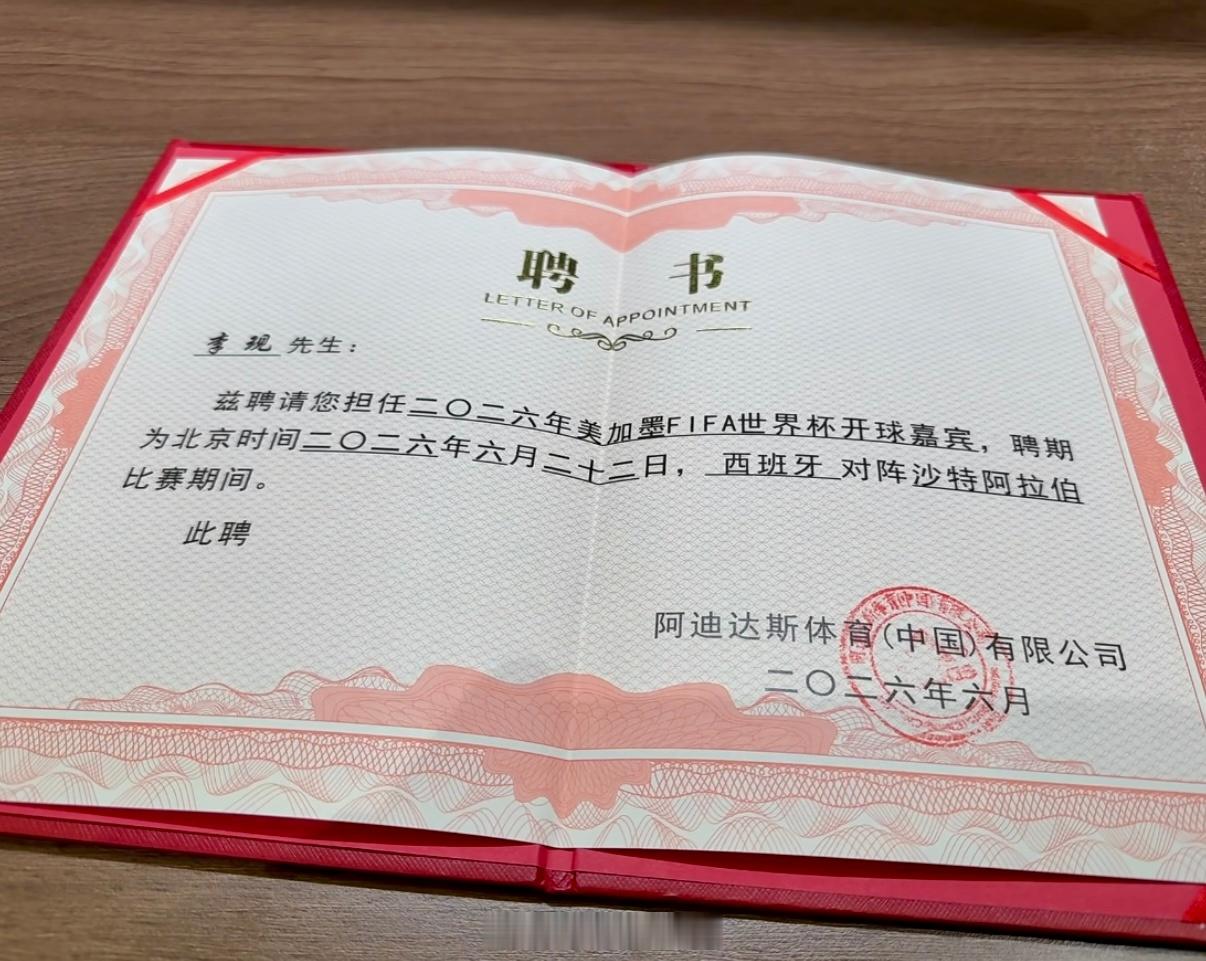 聘 书
LETTER OF APPOINTMENT
李现 先生：
兹聘请您担任二〇二六年美加墨FIFA世界杯开球嘉宾，聘期
为北京时间二〇二六年六月二十二日， 西班牙 对阵沙特阿拉伯
比赛期间。
此聘
阿迪达斯体育(中国)有限公司
二〇二六年六月